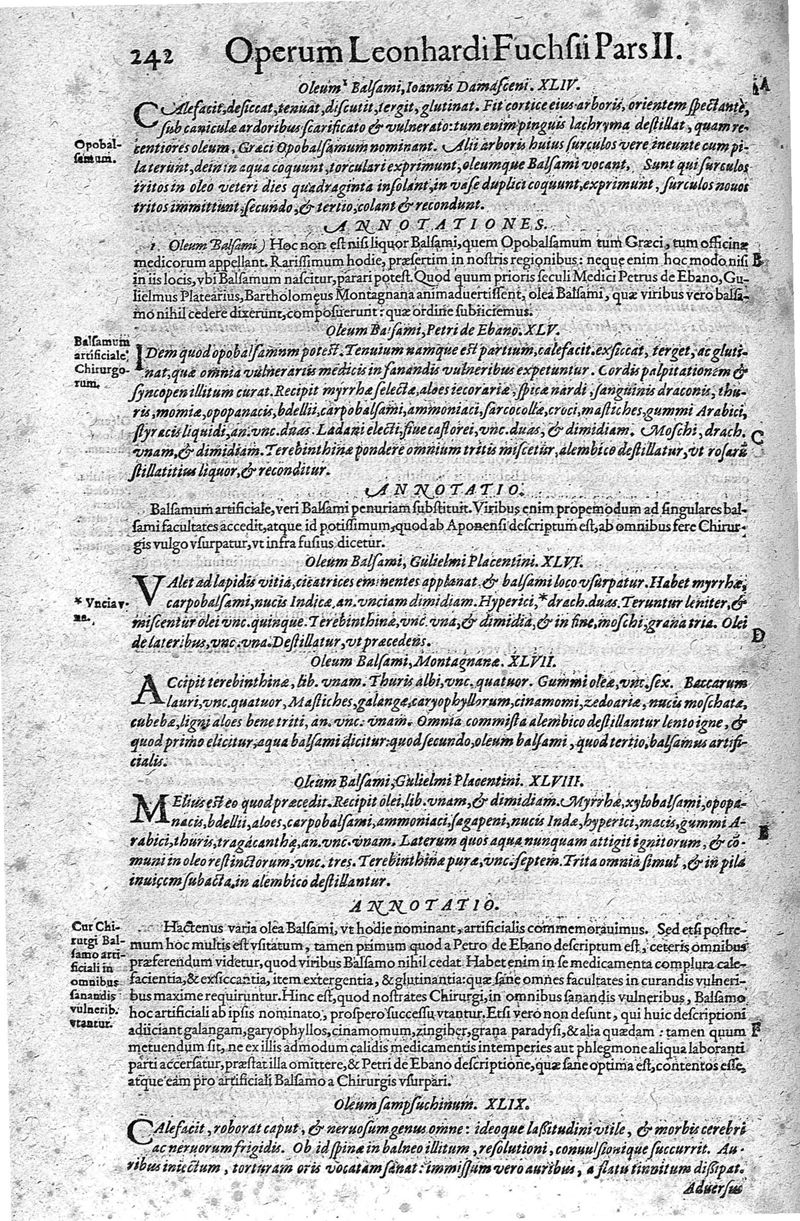 242 Operum Leonhardi Fuchsii Pars II.
Oleum¹ Balsami, Ioannis Damasceni. XLIV. A
CAlefacit, desiccat, tenuat, discutit, tergit, glutinat. Fit cortice eius arboris, orientem spectante,
sub caniculæ ardoribus scarificato & vulnerato: tum enim pinguis lachryma destillat, quam re-
Opobal-
samum.
centiores oleum, Græci Opobalsamum nominant. Alii arboris huius surculos vere ineunte cum pi-
la terunt, dein in aqua coquunt, torculari exprimunt, oleumque Balsami vocant. Sunt qui surculos
tritos in oleo veteri dies quadraginta insolant, in vase duplici coquunt, exprimunt, surculos nouos
tritos immittunt, secundo, & tertio, colant & recondunt.
ANNOTATIONES.
1. Oleum Balsami) Hoc non est nisi liquor Balsami, quem Opobalsamum tum Græci, tum officinæ
medicorum appellant. Rarissimum hodie, præsertim in nostris regionibus: neque enim hoc modo nisi B
in iis locis, vbi Balsamum nascitur, parari potest. Quod quum prioris seculi Medici Petrus de Ebano, Gu-
lielmus Platearius, Bartholomęus Montagnana animaduertissent, olea Balsami, quæ viribus vero balsa-
mo nihil cedere dixerunt, composuerunt: quæ ordine subiiciemus.
Oleum Balsami, Petri de Ebano. XLV.
Balsamum
artificiale
Chirurgo-
rum.
IDem quod opobalsamum potest. Tenuium namque est partium, calefacit, exsiccat, terget, ac gluti-
nat, quæ omnia vulnerariis medicis in sanandis vulneribus expetuntur. Cordis palpitationem &
syncopen illitum curat. Recipit myrrhæ selectæ, aloes iecorariæ, spicæ nardi, sanguinis draconis, thu-
ris, momiæ, opopanacis, bdellii, carpobalsami, ammoniaci, sarcocollæ, croci, mastiches, gummi Arabici,
styracis liquidi, an. vnc. duas. Ladani electi, siue castorei, vnc. duas, & dimidiam. Moschi, drach. C
vnam, & dimidiam. Terebinthinæ pondere omnium tritis miscetur, alembico destillatur, vt rosarũ
stillatitius liquor, & reconditur.
ANNOTATIO.
Balsamum artificiale, veri Balsami penuriam substituit. Viribus enim propemodum ad singulares bal-
sami facultates accedit, atque id potissimum, quod ab Aponensi descriptum est, ab omnibus fere Chirur-
gis vulgo vsurpatur, vt infra fusius dicetur.
Oleum Balsami, Gulielmi Placentini. XLVI.
VAlet ad lapidis vitia, cicatrices eminentes applanat, & balsami loco vsurpatur. Habet myrrhæ,
* Vncia v-
na.
carpobalsami, nucis Indicæ, an. vnciam dimidiam. Hyperici, * drach. duas. Teruntur leniter, &
miscentur olei vnc. quinque. Terebinthinæ, vnc. vna, & dimidia, & in fine, moschi, grana tria. Olei
de lateribus, vnc. vna. Destillatur, vt præcedens. D
Oleum Balsami, Montagnanæ. XLVII.
ACcipit terebinthinæ, lib. vnam. Thuris albi, vnc. quatuor. Gummi oleæ, vnc. sex. Baccarum
lauri, vnc. quatuor, Mastiches, galangæ, caryophyllorum, cinamomi, zedoariæ, nucis moschatæ,
cubebæ, ligni aloes bene triti, an. vnc. vnam. Omnia commista alembico destillantur lento igne, &
quod primo elicitur, aqua balsami dicitur: quod secundo, oleum balsami, quod tertio, balsamus artifi-
cialis.
Oleum Balsami, Gulielmi Placentini. XLVIII.
MElius est eo quod præcedit. Recipit olei, lib. vnam, & dimidiam. Myrrhæ, xylobalsami, opopa-
nacis, bdellii, aloes, carpobalsami, ammoniaci, sagapeni, nucis Indæ, hyperici, macis, gummi A- E
rabici, thuris, tragacanthæ, an. vnc. vnam. Laterum quos aqua nunquam attigit ignitorum, & cõ-
muni in oleo restinctorum, vnc. tres. Terebinthinæ puræ, vnc. septem. Trita omnia simul, & in pila
inuicem subacta, in alembico destillantur.
ANNOTATIO.
Cur Chi-
rurgi Bal-
samo arti-
ficiali in
omnibus
sanandis
vulnerib.
vtantur.
Hactenus varia olea Balsami, vt hodie nominant, artificialis commemorauimus. Sed etsi postre-
mum hoc multis est vsitatum, tamen primum quod a Petro de Ebano descriptum est, ceteris omnibus
præferendum videtur, quod viribus Balsamo nihil cedat. Habet enim in se medicamenta complura cale-
facientia, & exsiccantia, item extergentia, & glutinantia: quæ sane omnes facultates in curandis vulneri-
bus maxime requiruntur. Hinc est, quod nostrates Chirurgi, in omnibus sanandis vulneribus, Balsamo
hoc artificiali ab ipsis nominato, prospero successu vtantur. Etsi vero non desunt, qui huic descriptioni
adiiciant galangam, garyophyllos, cinamomum, zingiber, grana paradysi, & alia quædam: tamen quum F
metuendum sit, ne ex illis admodum calidis medicamentis intemperies aut phlegmone aliqua laboranti
parti accersatur, præstat illa omittere, & Petri de Ebano descriptione, quæ sane optima est, contentos esse,
atque eam pro artificiali Balsamo a Chirurgis vsurpari.
Oleum sampsuchinum. XLIX.
CAlefacit, roborat caput, & neruosum genus omne: ideoque lassitudini vtile, & morbis cerebri
ac neruorum frigidis. Ob id spinæ in balneo illitum, resolutioni, conuulsionique succurrit. Au-
ribus iniectum, torturam oris vocatam sanat: immissum vero auribus, a flatu tinnitum dissipat.
Aduersus